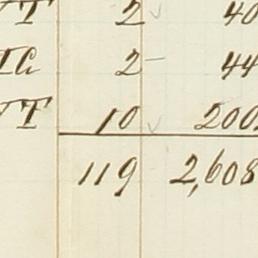 T 2 ✓ 40
2 - 44
T 10 ✓ 200
119 2,608